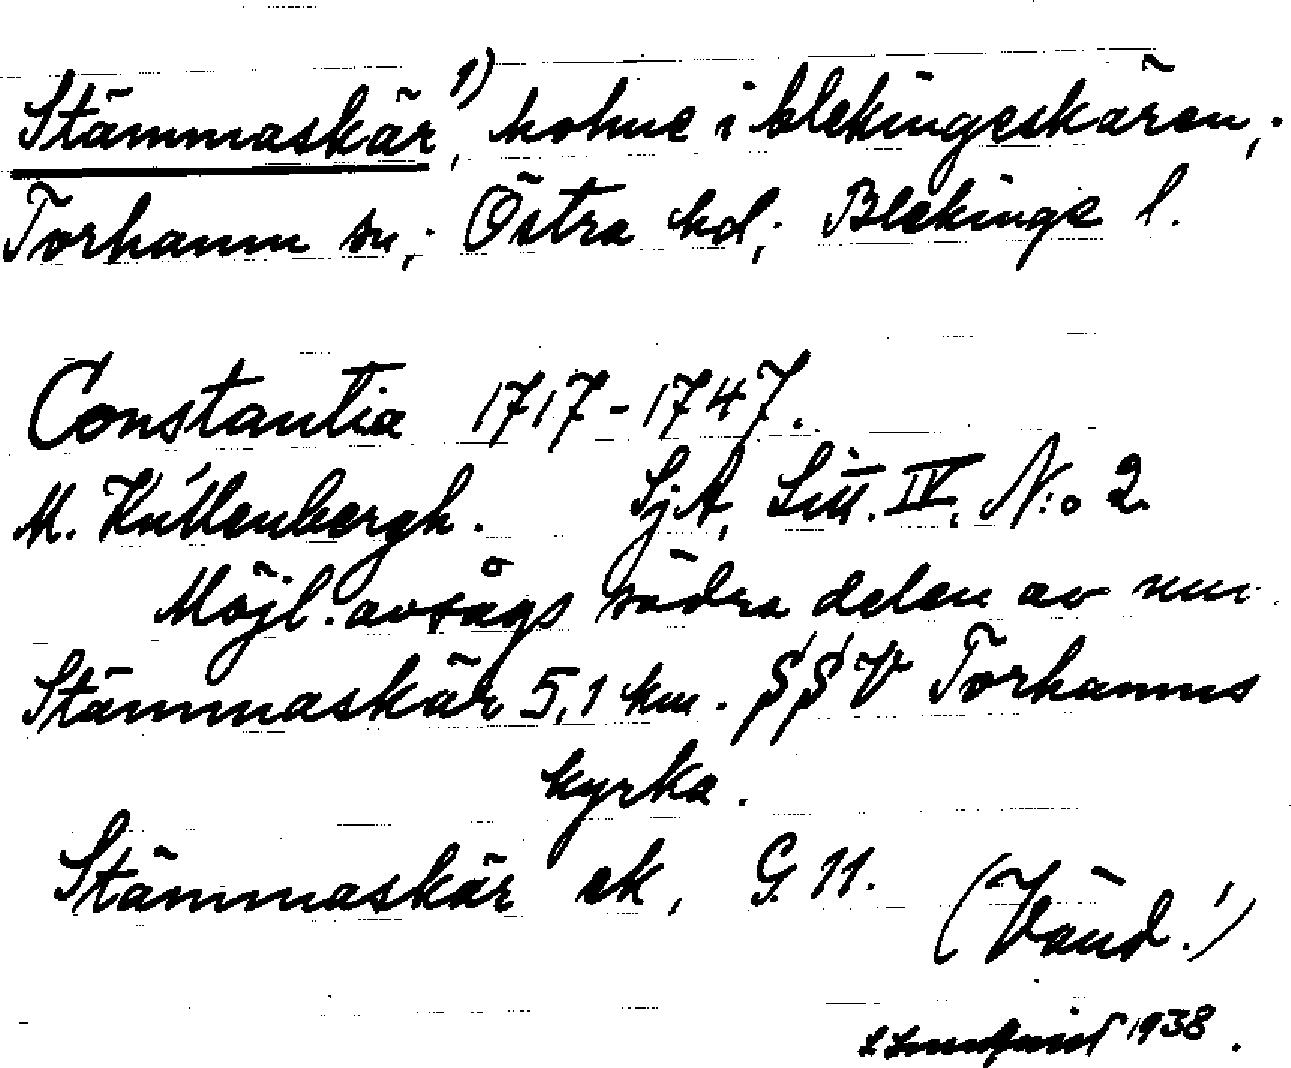 Stämmaskär,¹⁾ holme i blekingeskären,;
Torhamn sn,; Östra hd,; Blekinge l.
Constantia 1717-1747.
M. Kullenbergh. SjA, Litt. IV, N:o 2
Möjl. avsågs södra delen av nuv.
Stämmaskär 5,1 km. SSV Torhamns
kyrka.
Stämmaskär ek, G. 11.
(Vänd!)
1938.